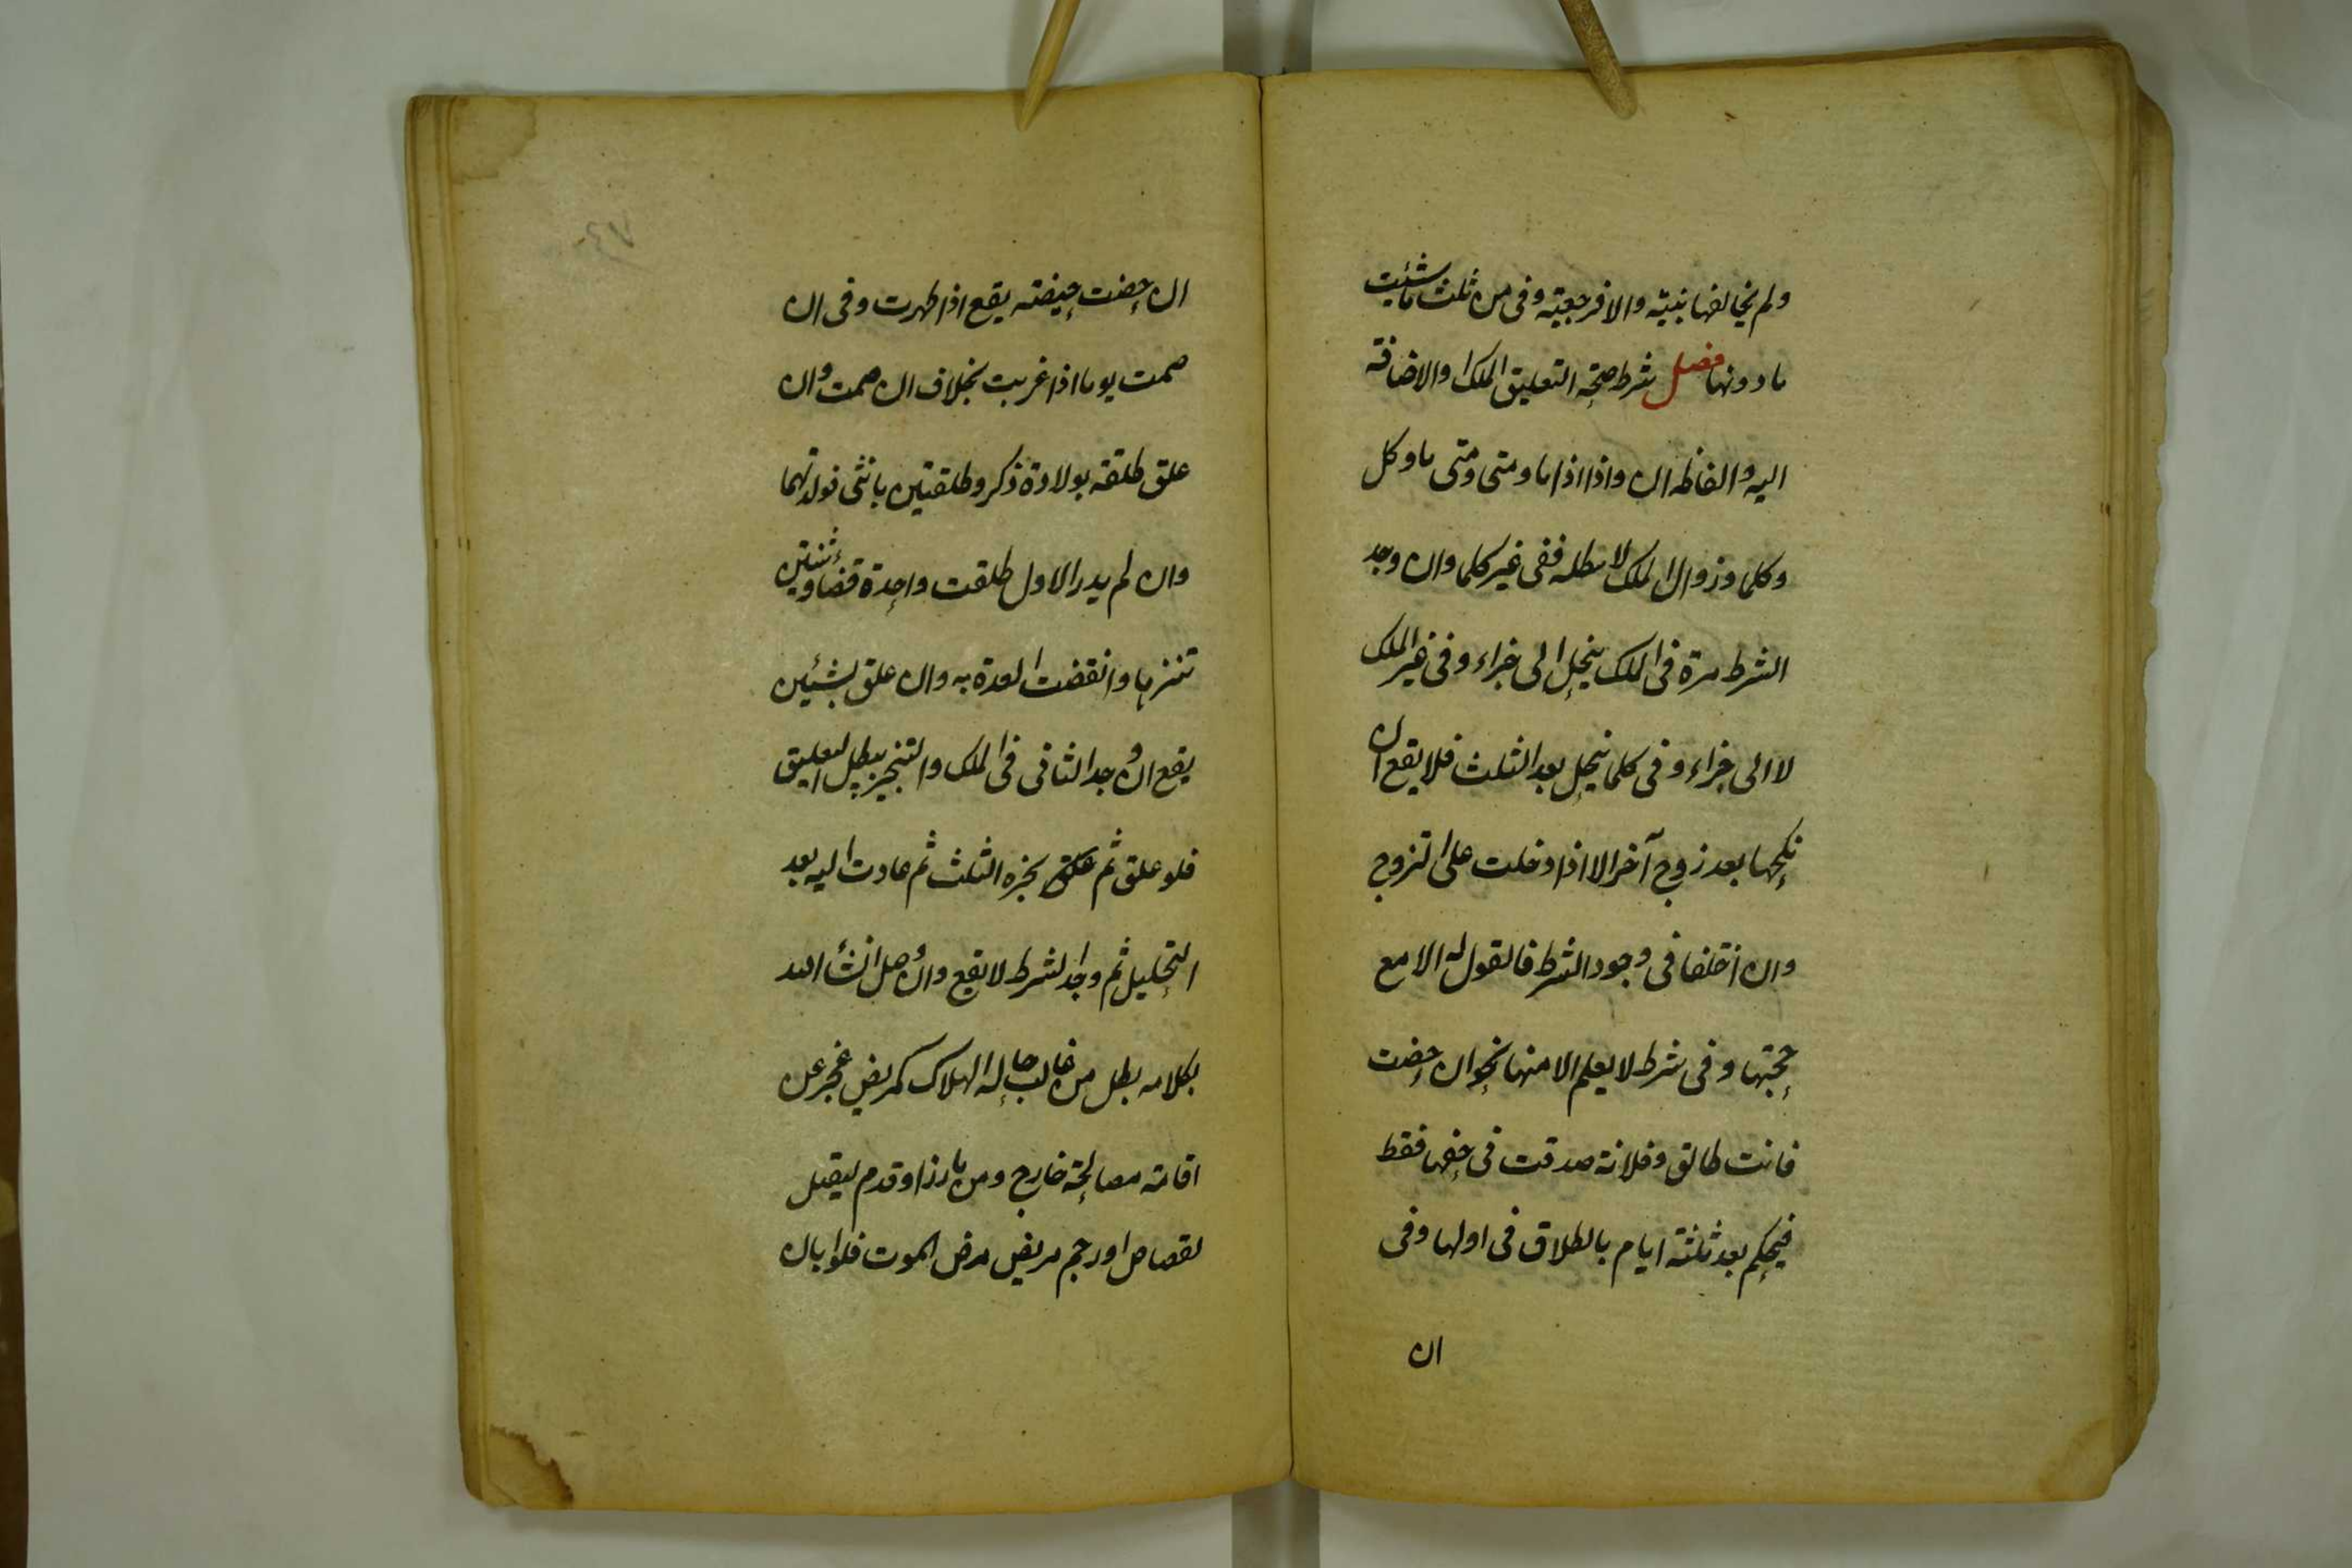 ولم يخالفها بنيته والا فرجعية وفي من ثلث ما شئت
ما دونها فصل شرط صحة التعليق الملك او الاضافة
اليه والفاظه ان واذا اذا ما ومتى ومتى ما وكل
وكلما وزوال الملك لا يبطله ففي غير كلما وان وجد
الشرط مرة في الملك ينحل الى جزاء وفي غير الملك
لا الى جزاء وفي كلما ينحل بعد الثلث فلا يقع ان
نكحها بعد زوج آخر الا اذا دخلت على التزوج
وان اختلفا في وجود الشرط فالقول له الا مع
حجتها وفي شرط لا يعلم الا منها نحو ان حضت
فانت طالق وفلانة صدقت في حقها فقط
فيحكم بعد ثلثة ايام بالطلاق في اولها وفي
ان
ان حضت حيضة يقع اذا طهرت وفي ان
صمت يوما اذا غربت بخلاف ان صمت وان
علق طلقة بولادة ذكر وطلقتين بانثى فولدتهما
وان لم يدر الاول طلقت واحدة قضا وثنتين
تنزها وانقضت العدة به وان علق بشيئين
يقع ان وجد الثاني في الملك والتنجيز يبطل التعليق
فلو علق ثم نجزه الثلث ثم عادت اليه بعد
التحليل ثم وجد الشرط لا يقع وان وصل انشا الله
بكلامه بطل من غالب حاله الهلاك كمريض عجز عن
اقامة مصالحة خارج ومن بارز او قدم ليقتل
لقصاص او رجم مريض مرض الموت فلو ابان